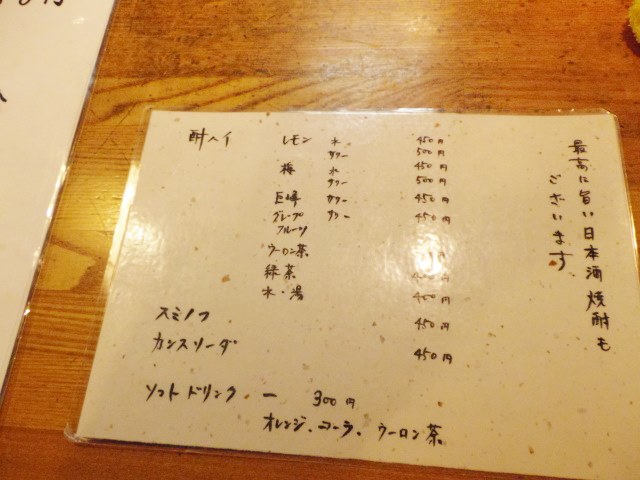 酎ハイ レモン 水 450円
サワー 500円
梅 水 450円
サワー 500円
巨峰 サワー 450円
グレープ サワー 450円
フルーツ
ウーロン茶 円
緑茶
水・湯 400円
スミノフ 450円
カンスリーダ 450円
ソフトドリンク ー 300円
オレンジ、コーラ、ウーロン茶
最高に旨い日本酒焼酎も
ございます